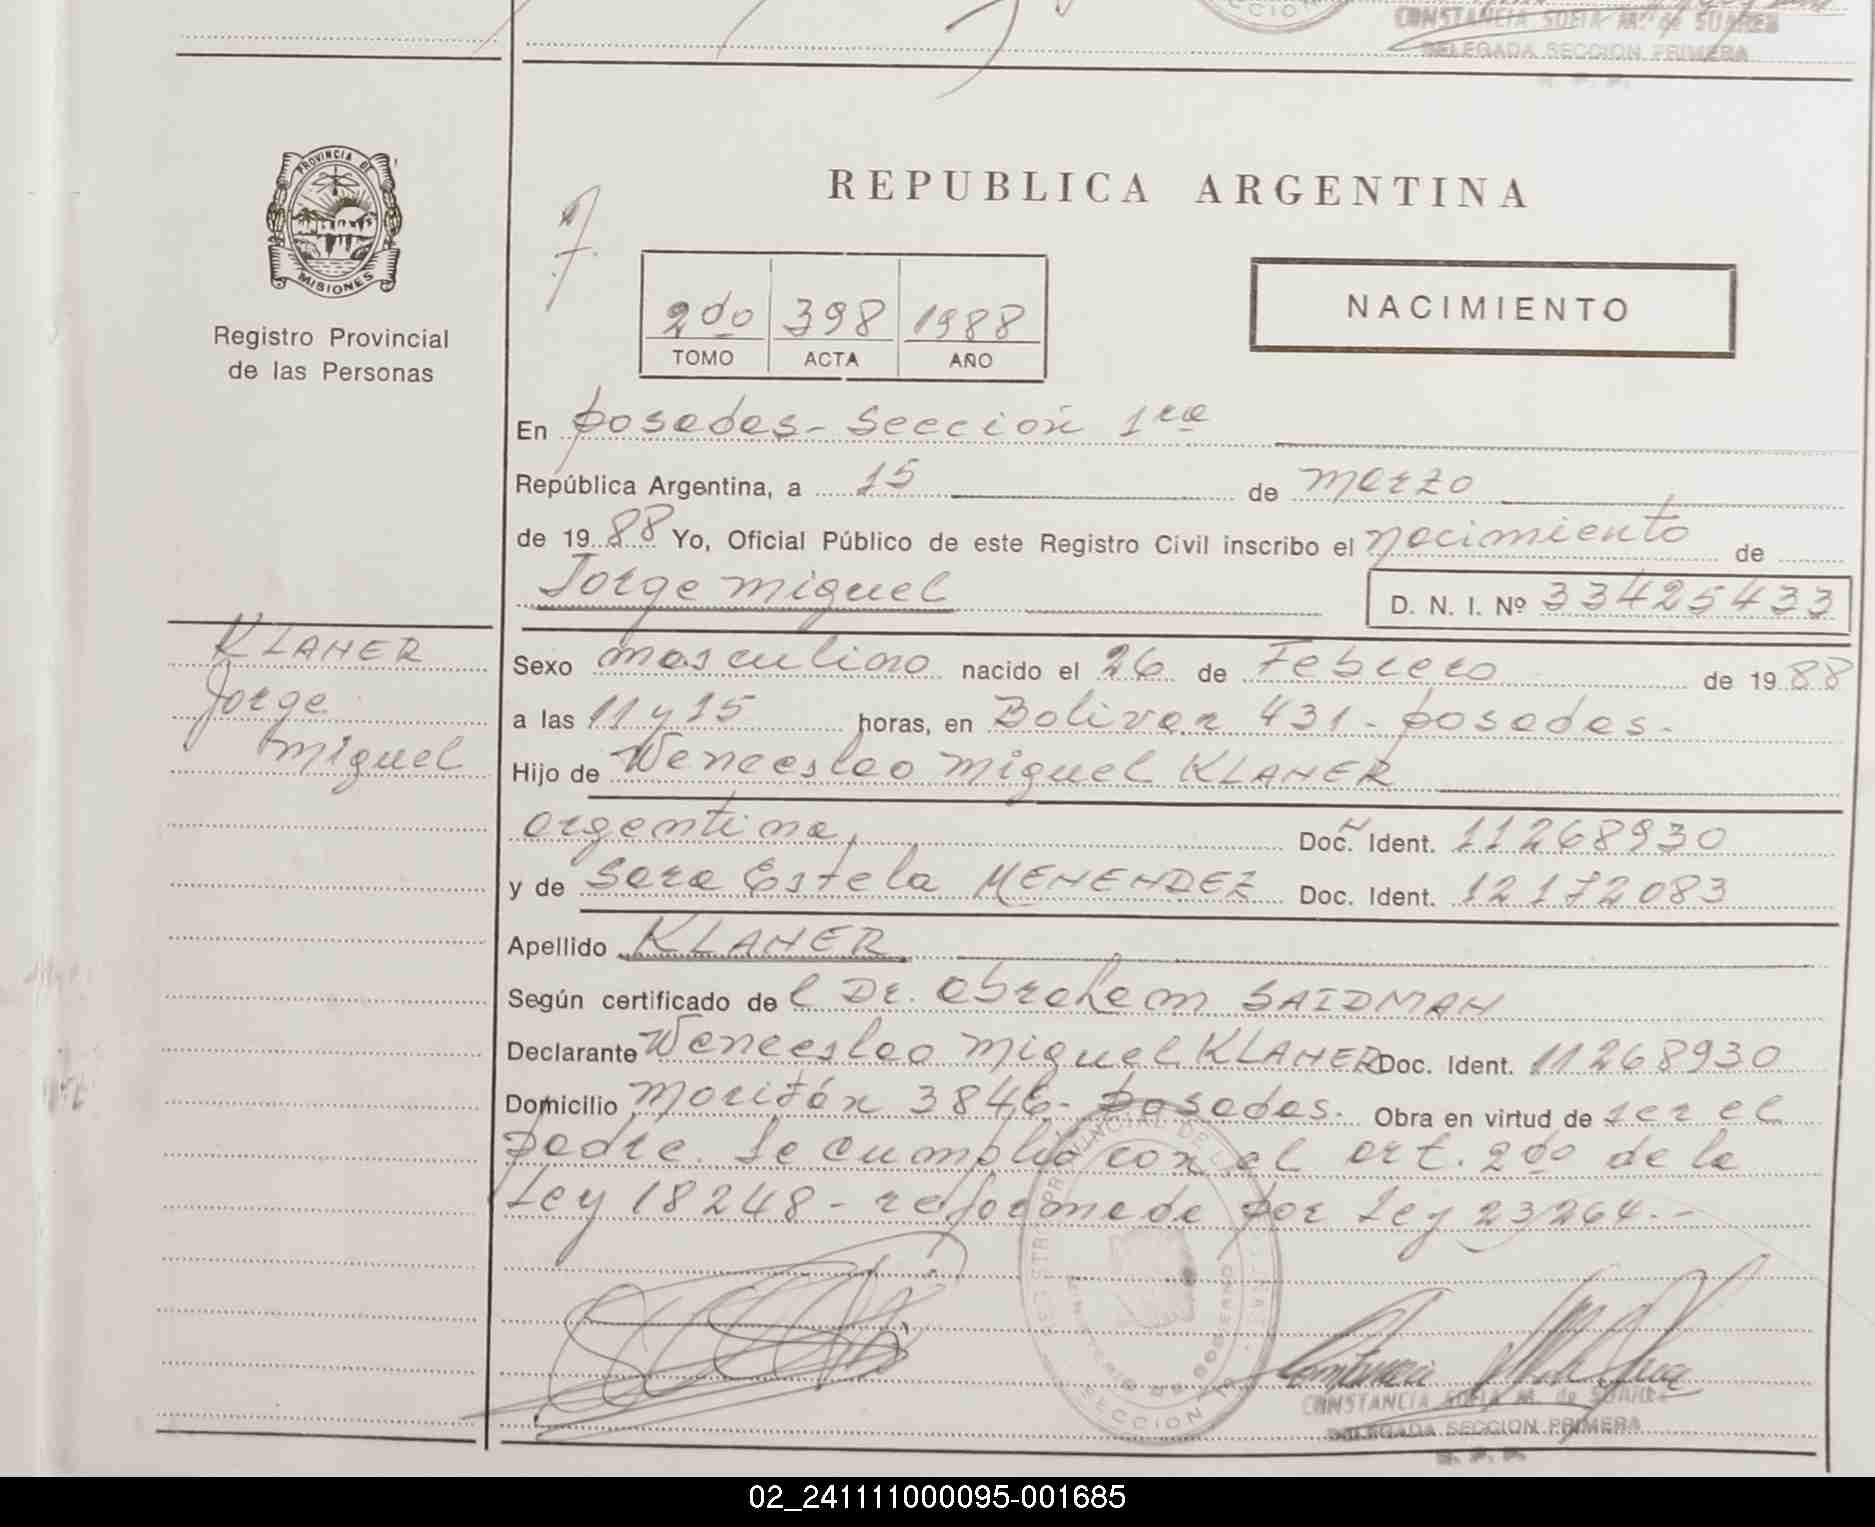 CONSTANCIA SOFIA M. de SUAREZ
DELEGADA SECCION PRIMERA
R. P. P.
PROVINCIA DE
MISIONES
Registro Provincial
de las Personas
REPUBLICA ARGENTINA
2do 398 1988
TOMO ACTA AÑO
NACIMIENTO
En Posadas - Sección 1ra
República Argentina, a 15 de marzo
de 1988 Yo, Oficial Público de este Registro Civil inscribo el nacimiento de
Jorge Miguel
D. N. I. Nº 33425433
KLAHER
Jorge
Miguel
Sexo masculino nacido el 26 de Febrero de 1988
a las 11 y 15 horas, en Bolivar 431 - Posadas.
Hijo de Wenceslao Miguel KLAHER
argentina, Doc. Ident. 11268930
y de Sara Estela MENENDEZ Doc. Ident. 12172083
Apellido KLAHER
Según certificado del Dr. Abraham SAIDMAN
Declarante Wenceslao Miguel KLAHER Doc. Ident. 11268930
Domicilio 3846 - Posadas. Obra en virtud de ser el
padre. Se cumplió con el art. 2do de la
Ley 18248 - reformada por Ley 23264.-
REGISTRO PROVINCIAL DE LAS PERSONAS
MINISTERIO DE GOBIERNO
SECCION 1a
CONSTANCIA SOFIA M. de SUAREZ
DELEGADA SECCION PRIMERA
R. P. P.
02_241111000095-001685